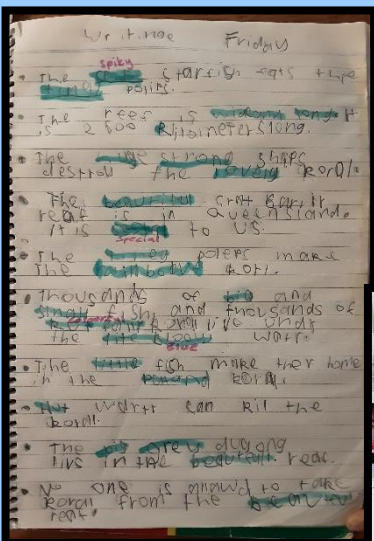 Writing Friday
spiky
The starfish eats the
tiny polips.
The reef is and long. It
is 2 500 Kilometers long.
The huge strong ships
destroy the lovely korol.
The beautiful Grat Bariir
reaf is in Queensland.
It is to us.
special
The tiney polers make
the rainbow korl.
Thousands of big and
small fish, and thousands of
korol live undr
the warr.
blue
The little fish make ther home
in the korol.
Hot warrr can kil the
korol.
The big grey dugong
livs in the beautiful reaf.
No one is allowd to take
koroll from the
reaf.